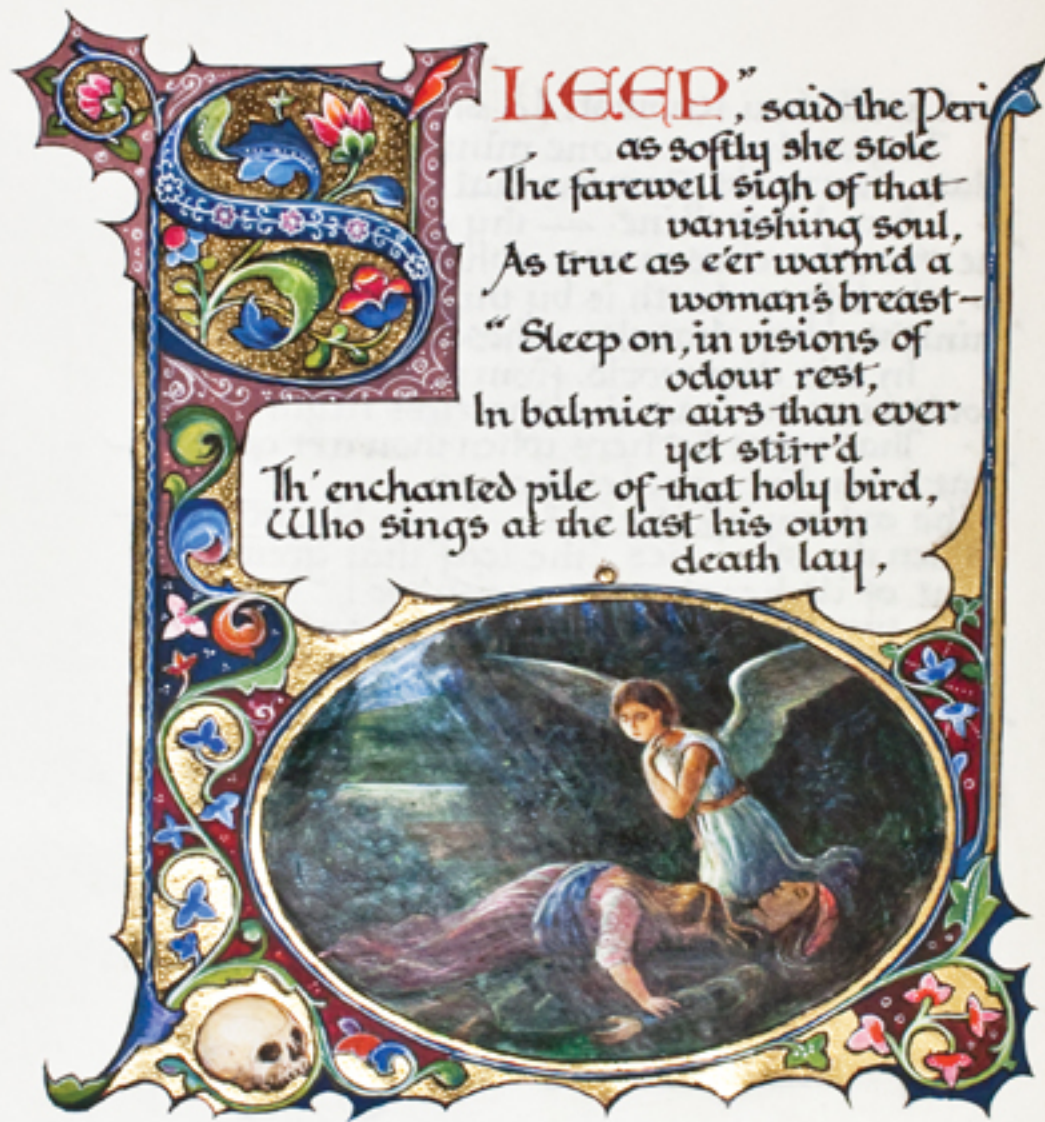 SLEEP”, said the Peri
as softly she stole
The farewell sigh of that
vanishing soul,
As true as e'er warm'd a
woman's breast—
“Sleep on, in visions of
odour rest,
In balmier airs than ever
yet stirr'd
Th' enchanted pile of that holy bird,
Who sings at the last his own
death lay,